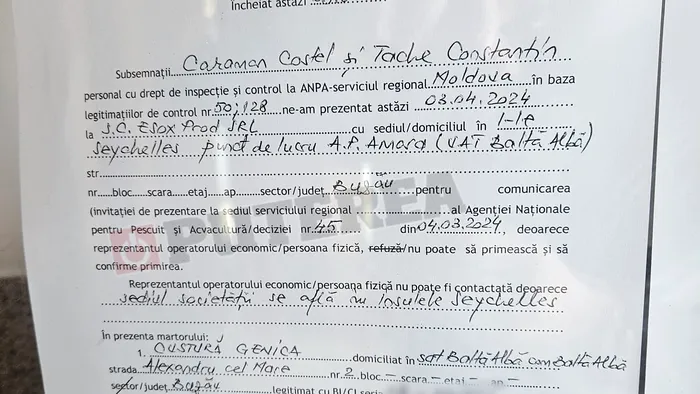 Încheiat astăzi
Subsemnații...Caraman Costel și Tache Constantin
personal cu drept de inspecție și control la ANPA-serviciul regional Moldova în baza
legitimațiilor de control nr. 50; 128 ne-am prezentat astăzi 03.04.2024
la S.C. Esox Prod SRL cu sediul/domiciliul în I-le
Seychelles punct de lucru A.P. Amara (VAT Baltă Albă)
str
nr......bloc......scara......etaj......ap.........sector/județ Buzău pentru comunicarea
(invitației de prezentare la sediul serviciului regional ........................al Agenției Naționale
pentru Pescuit și Acvacultură/deciziei nr. 45 din 04.03.2024, deoarece
reprezentantul operatorului economic/persoana fizică, refuză/nu poate să primească și să
confirme primirea.
Reprezentantul operatorului economic/persoana fizică nu poate fi contactată deoarece
sediul societății se află în Insulele Seychelles
În prezenta martorului:
1. CUSTURĂ GENICA domiciliat în sat Baltă Albă com Baltă Albă
strada Alexandru cel Mare nr. 2 bloc – scara – etaj – ap –
sector/județ Buzău legitimat cu BI/CI seria
PUTEREA